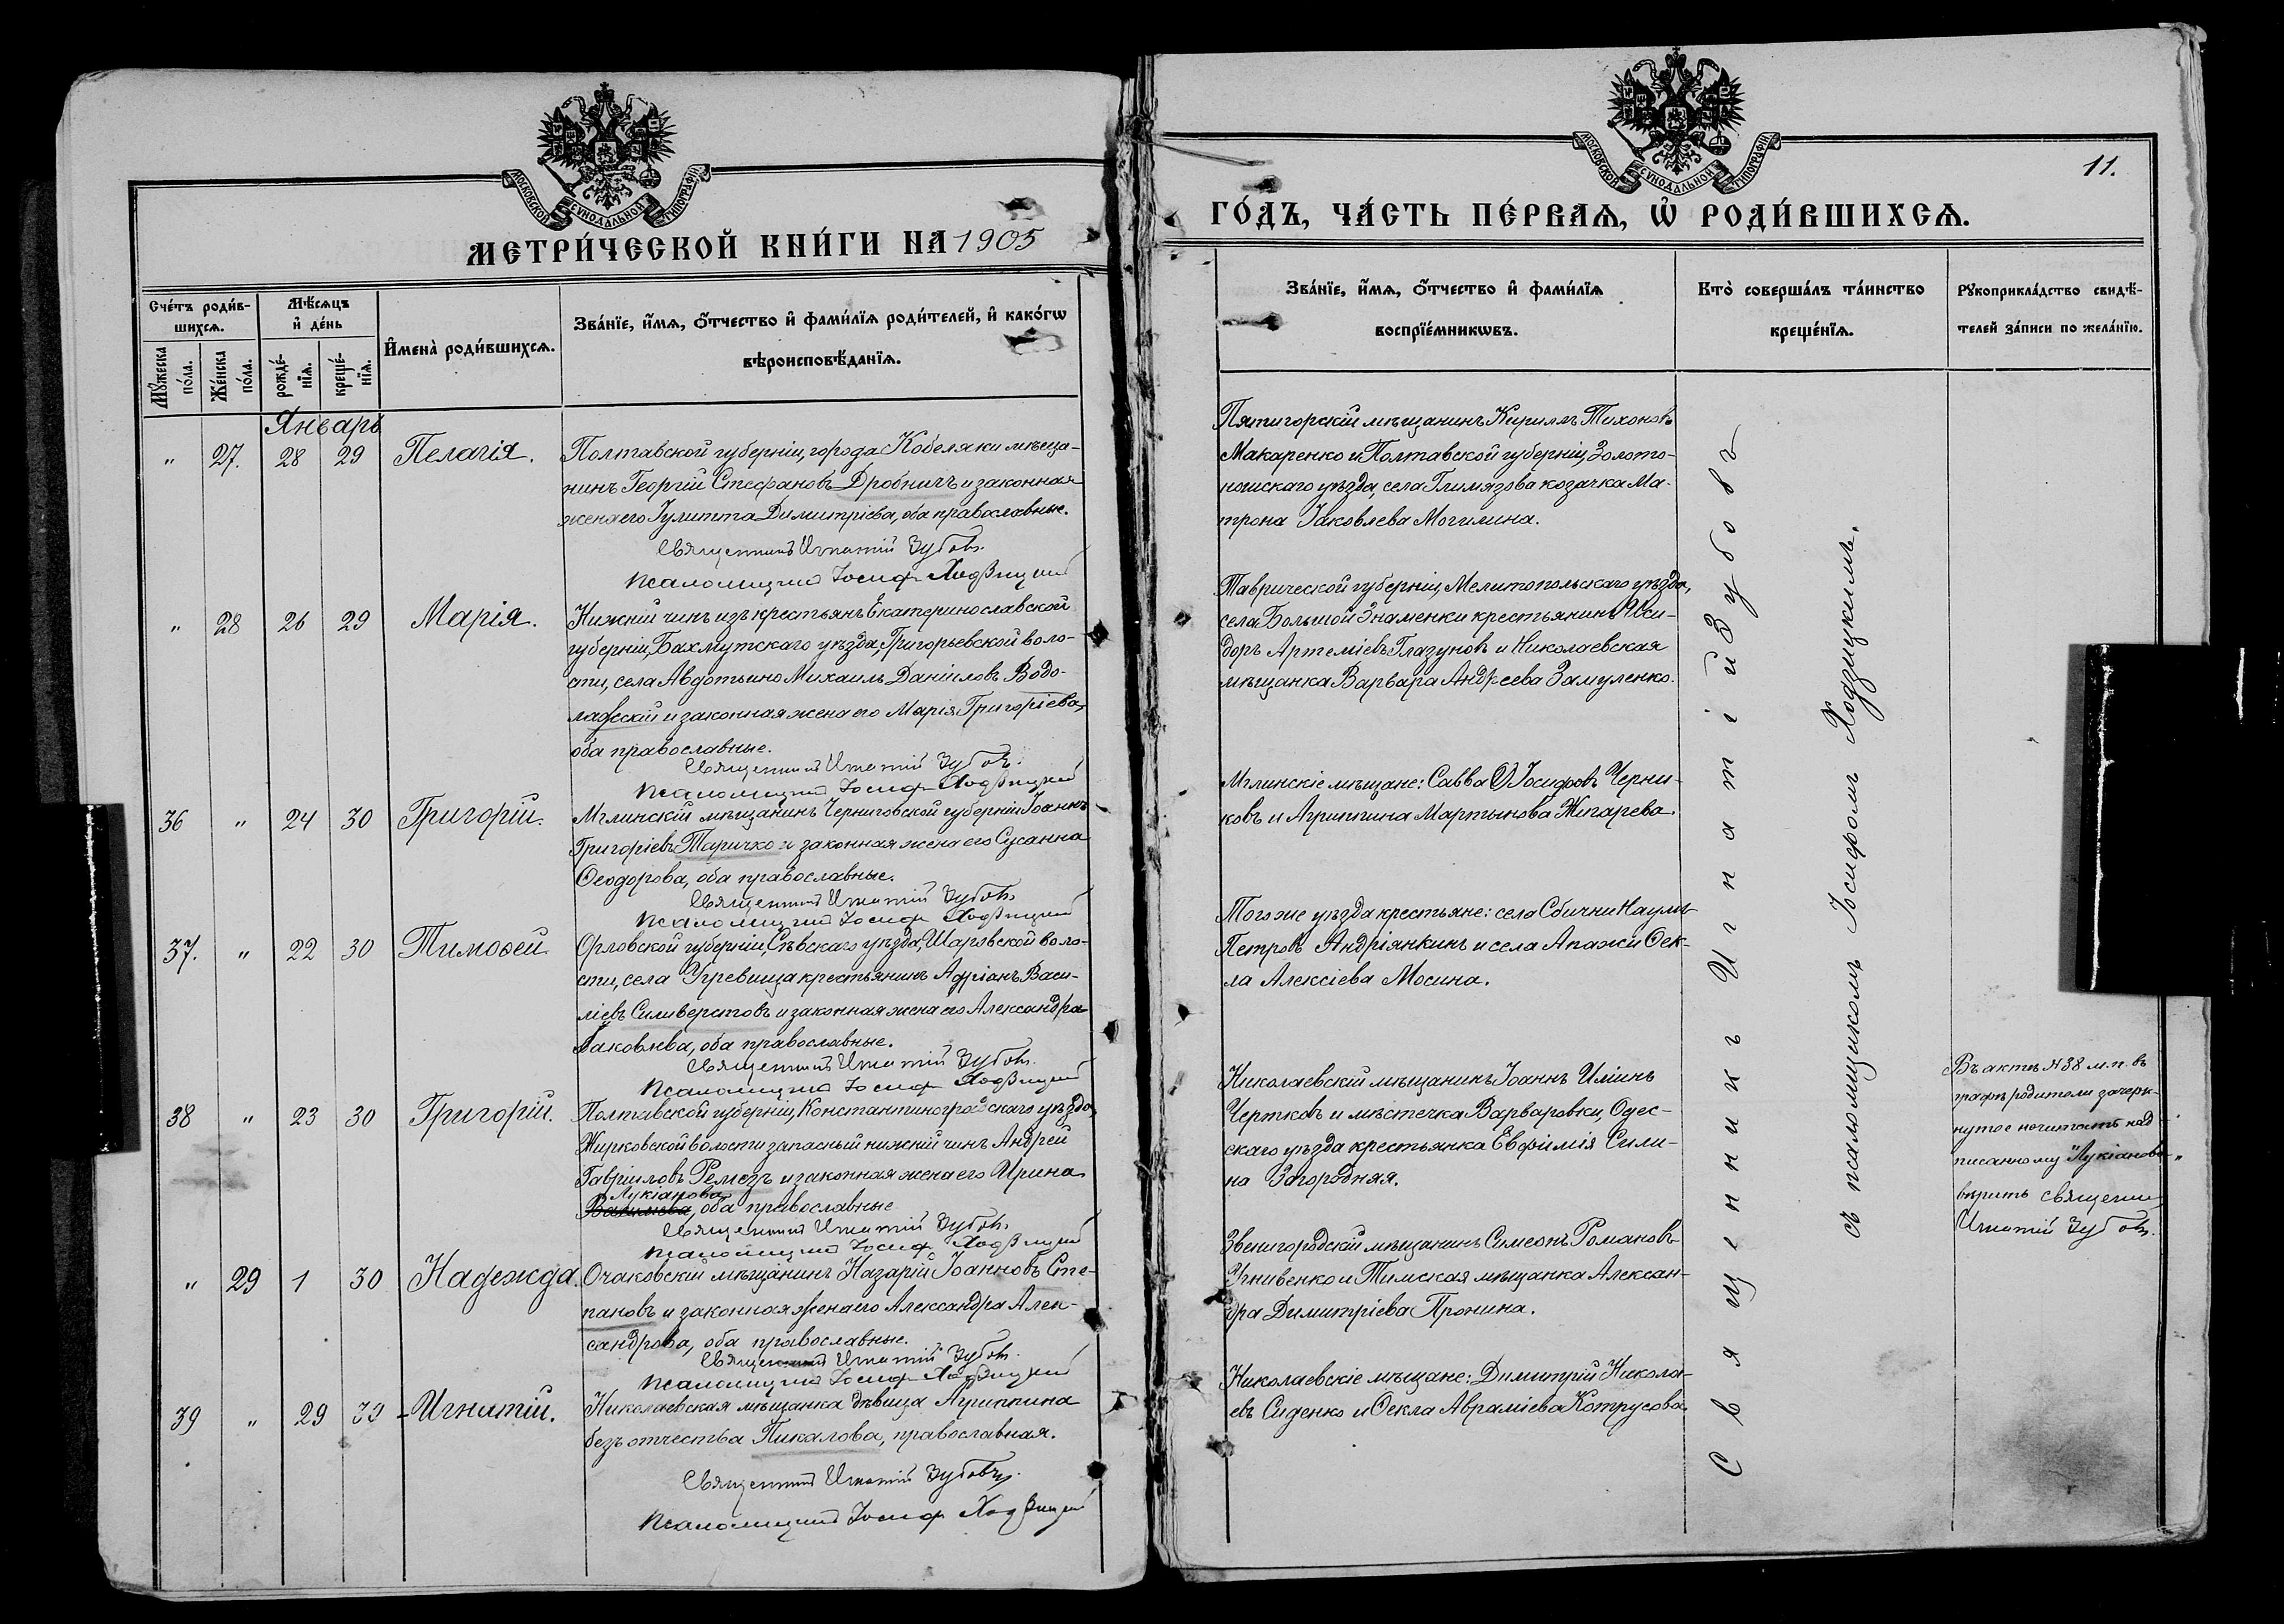 МОСКОВСКОЙ СѴНОДАЛЬНОЙ ТИПОГРАФІИ
МЕТРИ́ЧЕСКОЙ КНИ́ГИ НА 1905
Сче́тъ роди́в-
шихсѧ.
Мѣ́сѧцъ
и҆ де́нь
Мꙋ́жеска
по́ла.
Же́нска
по́ла.
рожде́-
нїѧ.
креще́-
нїѧ.
И҆мена̀ роди́вшихсѧ.
Зва́нїе, и҆́мѧ, ѻ҆́тчество и҆ фами́лїѧ роди́телей, и҆ како́гѡ
вѣроисповѣ́данїѧ.
Январь
" 27. 28 29 Пелагія.
Полтавской губерніи, города Кобеляки мѣща-
нинъ Георгій Стефановъ Дробничъ и законная
жена его Іулитта Димитріева, оба православные.
Священникъ Игнатій Зубовъ.
Псаломщикъ Іосифъ Ходзицкій
" 28 26 29 Марія.
Нижній чинъ изъ крестьянъ Екатеринославской
губерніи, Бахмутскаго уѣзда, Григорьевской воло-
сти, села Авдотьино Михаилъ Даніиловъ Водо-
лазскій и законная жена его Марія Григоріева,
оба православные.
Священникъ Игнатій Зубовъ.
Псаломщикъ Іосифъ Ходзицкій
36 " 24 30 Григорій.
Мглинскій мѣщанинъ Черниговской губерніи Іоаннъ
Григоріевъ Таричко и законная жена его Сусанна
Ѳеодорова, оба православные.
Священникъ Игнатій Зубовъ.
Псаломщикъ Іосифъ Ходзицкій
37. " 22 30 Тимоѳей.
Орловской губерніи, Сѣвскаго уѣзда, Шаровской воло-
сти, села Угревища крестьянинъ Адріанъ Васи-
ліевъ Силиверстовъ и законная жена его Александра
Іаковлева, оба православные.
Священникъ Игнатій Зубовъ.
Псаломщикъ Іосифъ Ходзицкій
38 " 23 30 Григорій.
Полтавской губерніи, Константиноградскаго уѣзда,
Жирковской волости запасный нижній чинъ Андрей
Гавріиловъ Ремезъ и законная жена его Ирина
Лукіанова
, оба православные
Священникъ Игнатій Зубовъ.
Псаломщикъ Іосифъ Ходзицкій
" 29 1 30 Надежда.
Очаковскій мѣщанинъ Назарій Іоанновъ Сте-
пановъ и законная жена его Александра Алек-
сандрова, оба православные.
Священникъ Игнатій Зубовъ.
Псаломщикъ Іосифъ Ходзицкій
39 " 29 30 Игнатій.
Николаевская мѣщанка дѣвица Агриппина
безъ отчества Пикалова, православная.
Священникъ Игнатій Зубовъ.
Псаломщикъ Іосифъ Ходзицкій
МОСКОВСКОЙ СѴНОДАЛЬНОЙ ТИПОГРАФІИ
11.
ГО́ДЪ, ЧА́СТЬ ПЕ́РВАѦ, Ѡ҆ РОДИ́ВШИХСѦ.
Зва́нїе, и҆́мѧ, ѻ҆́тчество и҆ фами́лїѧ
воспрїе́мникѡвъ.
Кто̀ соверша́лъ та́инство
креще́нїѧ.
Рꙋкоприкла́дство свидѣ́-
телей за́писи по жела́нїю.
Пятигорскій мѣщанинъ Кириллъ Тихоновъ
Макаренко и Полтавской губерніи, Золото-
ношскаго уѣзда, села Глимязова козачка Ма-
трона Іаковлева Могилина.
Таврической губерніи, Мелитопольскаго уѣзда,
села Большой Знаменки крестьянинъ Иси-
доръ Артеміевъ Глазуновъ и Николаевская
мѣщанка Варвара Андреева Замуленко.
Мглинскіе мѣщане: Савва Іосифовъ Черни-
ковъ и Агриппина Мартынова Жигарева.
Того же уѣзда крестьяне: села Сбични Наумъ
Петровъ Андріянкинъ и села Апажи Ѳек-
ла Алексіева Мосина.
Николаевскій мѣщанинъ Іоаннъ Иліинъ
Чертковъ и мѣстечка Варваровки, Одес-
скаго уѣзда крестьянка Евфимія Сили-
на Загородняя.
Звенигородскій мѣщанинъ Симеонъ Романовъ
Угнивенко и Тимская мѣщанка Алексан-
дра Димитріева Пронина.
Николаевскіе мѣщане: Димитрій Никола-
евъ Сиденко и Ѳекла Авраміева Котрусова.
Священникъ Игнатій Зубовъ
съ псаломщикомъ Іосифомъ Ходзицкимъ.
Въ актѣ № 38 м.п. въ
графѣ родители зачерк-
нутое почитать над-
писанному "Лукіанова"
вѣрить священн.
Игнатій Зубовъ.